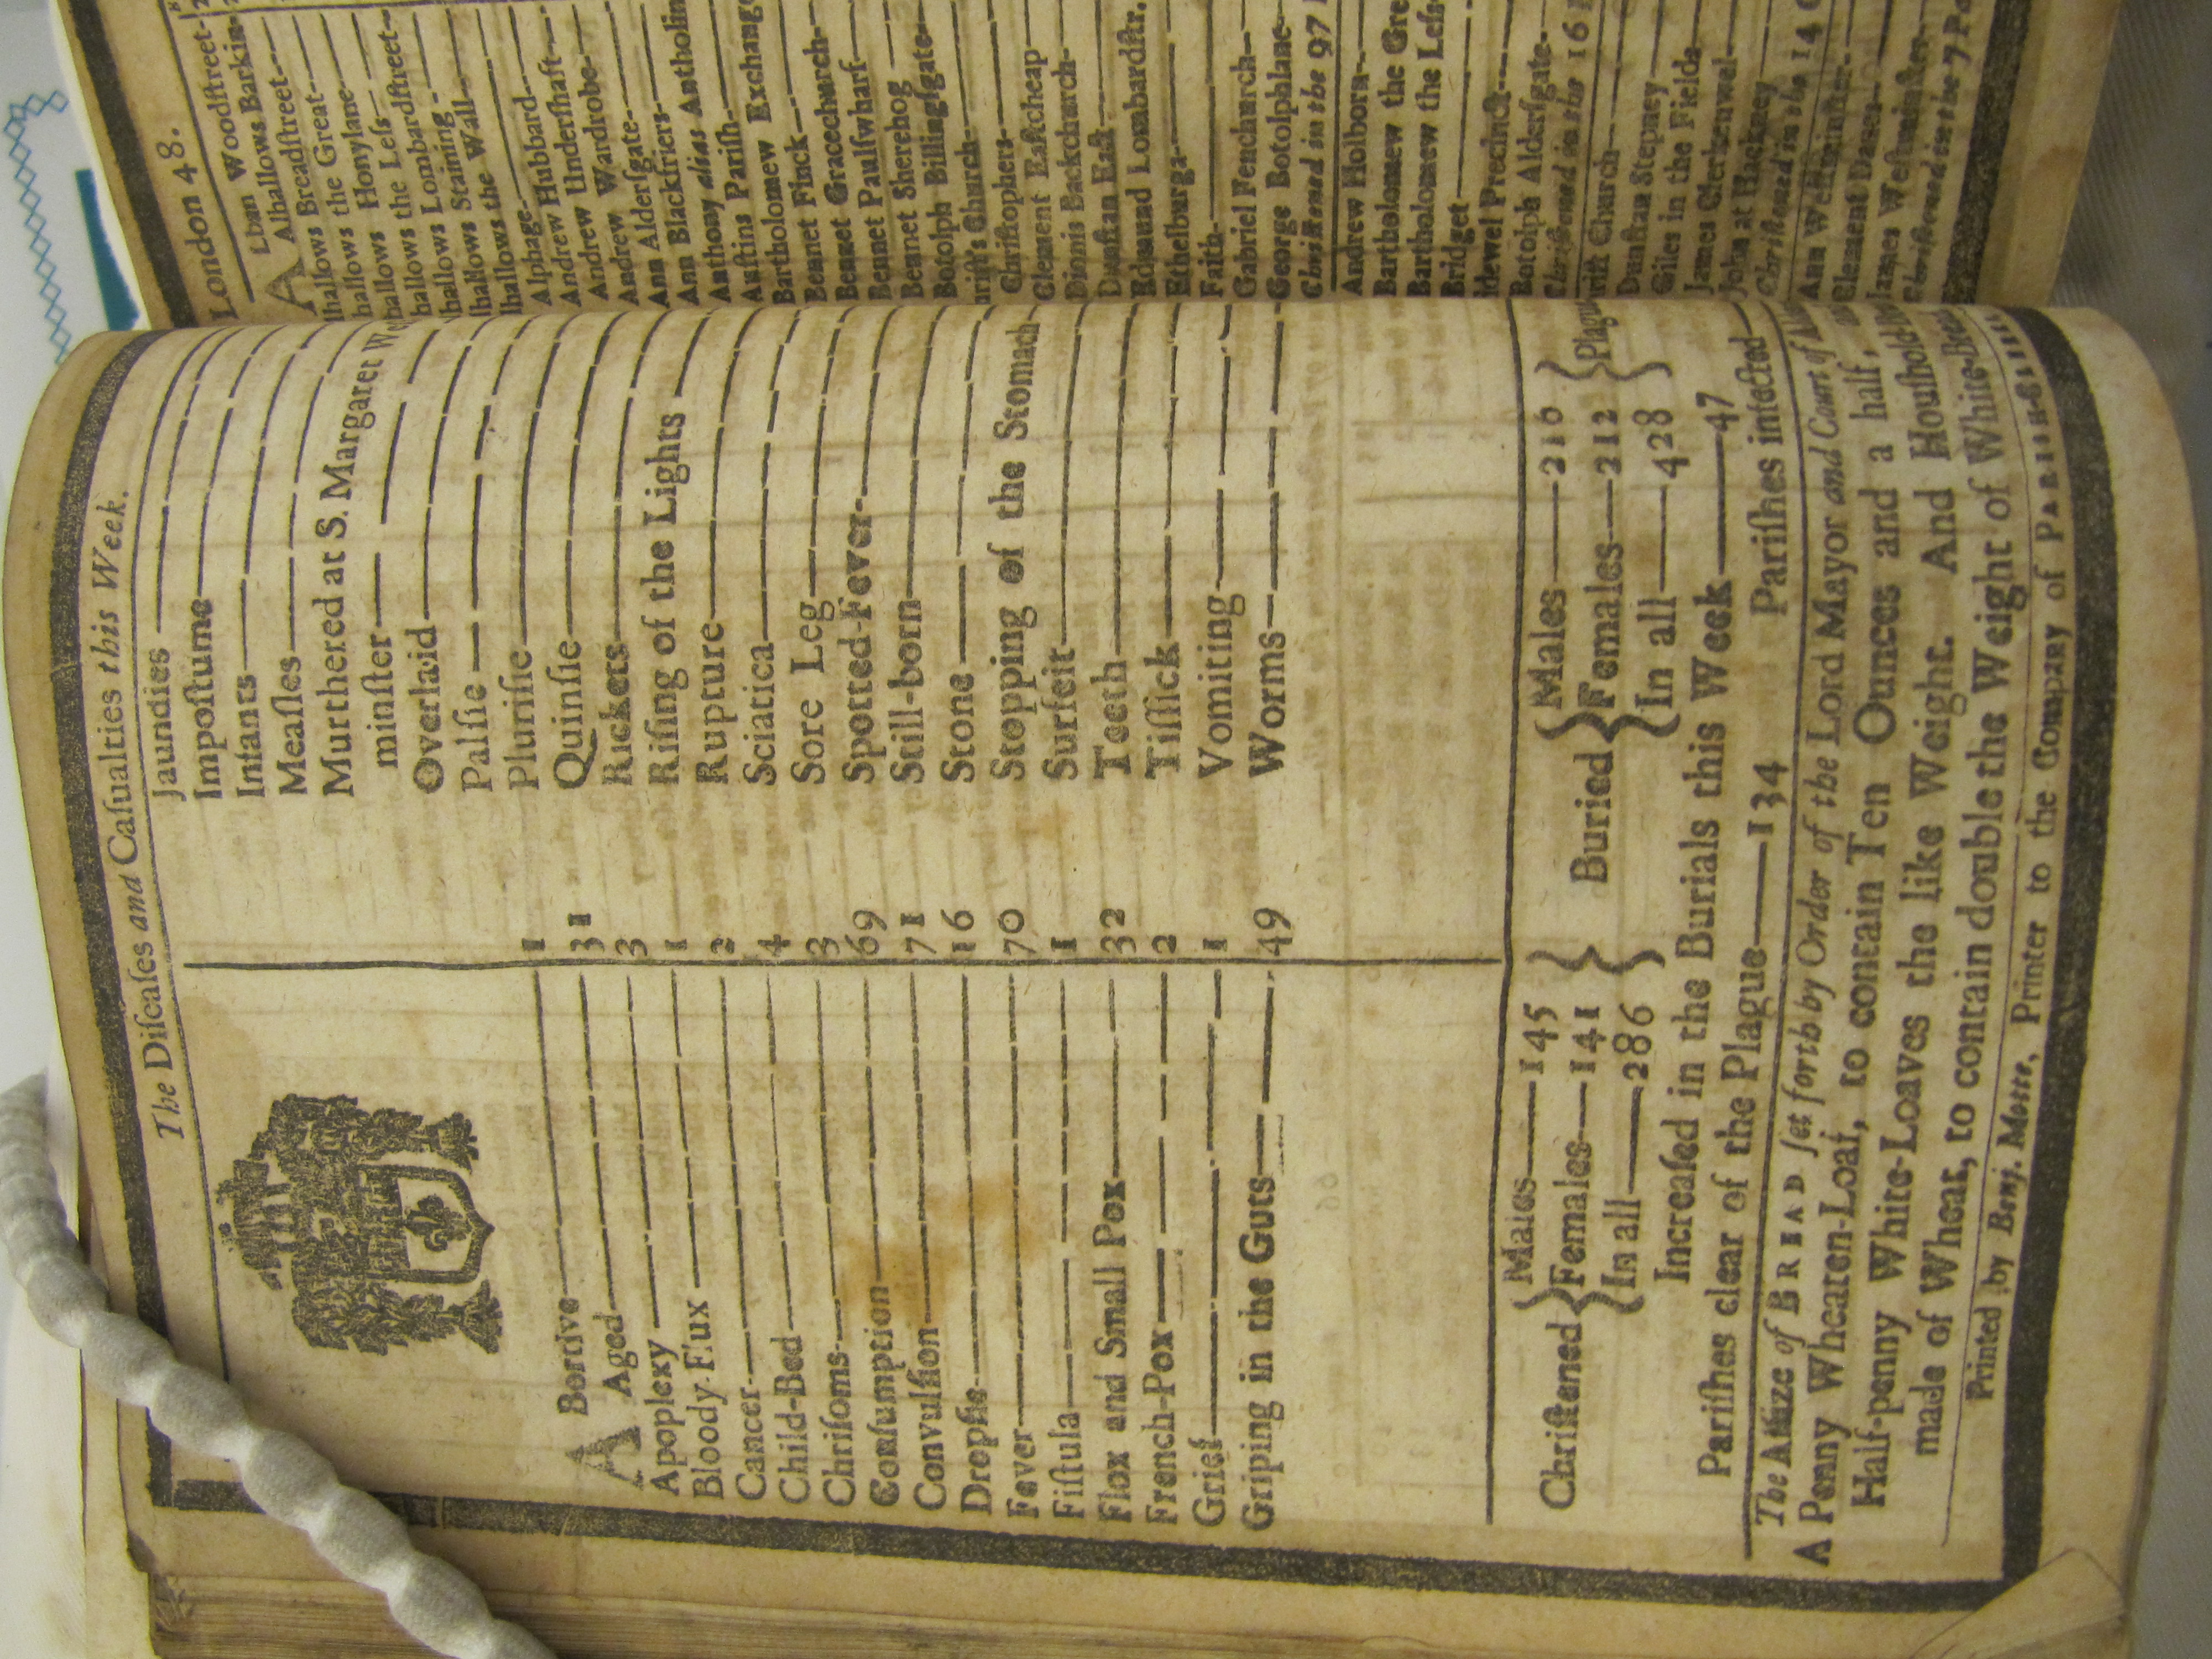 The Diſeaſes and Caſualties this Week.
A Bortive 1
Aged 31
Apoplexy 3
Bloody-Flux 1
Cancer 2
Child-Bed 4
Chriſoms 3
Conſumption 69
Convulſion 71
Dropſie 16
Fever 70
Fiſtula 1
Flox and Small Pox 32
French-Pox 2
Grief 1
Griping in the Guts 49
Jaundies
Impoſtume
Infants
Meaſles
Murthered at S. Margaret
minſter
Overlaid
Palſie
Pluriſie
Quinſie
Rickets
Riſing of the Lights
Rupture
Sciatica
Sore Leg
Spotted-Fever
Still-born
Stone
Stopping of the Stomach
Surfeit
Teeth
Tiſſick
Vomiting
Worms
Chriſtened { Males 145
Females 141
In all 286 }
Buried { Males 216
Females 212
In all 428 }
Increaſed in the Burials this Week 47
Pariſhes clear of the Plague 134 Pariſhes infected
The Aſſize of BREAD ſet forth by Order of the Lord Mayor and Court of
A Penny Wheaten-Loaf, to contain Ten Ounces and a half,
Half-penny White-Loaves the like Weight. And
made of Wheat, to contain double the Weight of
Printed by Benj. Motte, Printer to the Company of
London 48.
Woodſtreet
Alhallows Barkin
Alhallows Breadſtreet
lhallows the Great
hallows Honylane
hallows the Leſs
hallows Lombardſtreet
hallows Staining
lhallows the Wall
Alphage
Andrew Hubbard
Andrew Underſhaft
Andrew Wardrobe
Ann Alderſgate
Ann Blackfriers
Anthony alias Antholin
Auſtins Pariſh
Bartholomew Exchang
Bennet Finck
Bennet Gracechurch
Bennet Paulſwharf
Bennet Sherehog
Botolph Billingſgate
Church
Chriſtophers
Clement Eaſtcheap
Dionis Backchurch
Dunſtan Eaſt
Edmund Lombardſtr.
Ethelburga
Faith
Gabriel Fenchurch
George Botolphlane
Chriſtened in the 97
Andrew Holborn
Bartholomew the Gre
Bartholomew the Leſs
Bridget
idewel Precinct
Botolph Alderſgate
Chriſtened in the 16
Church
Dunſtan Stepney
Giles in the Fields
James Clerkenwel
John at Hackney
Chriſtened in the 14
Ann Weſtminſter
Clement Danes
James Weſtminſter
Chriſtened in the 7 Pa